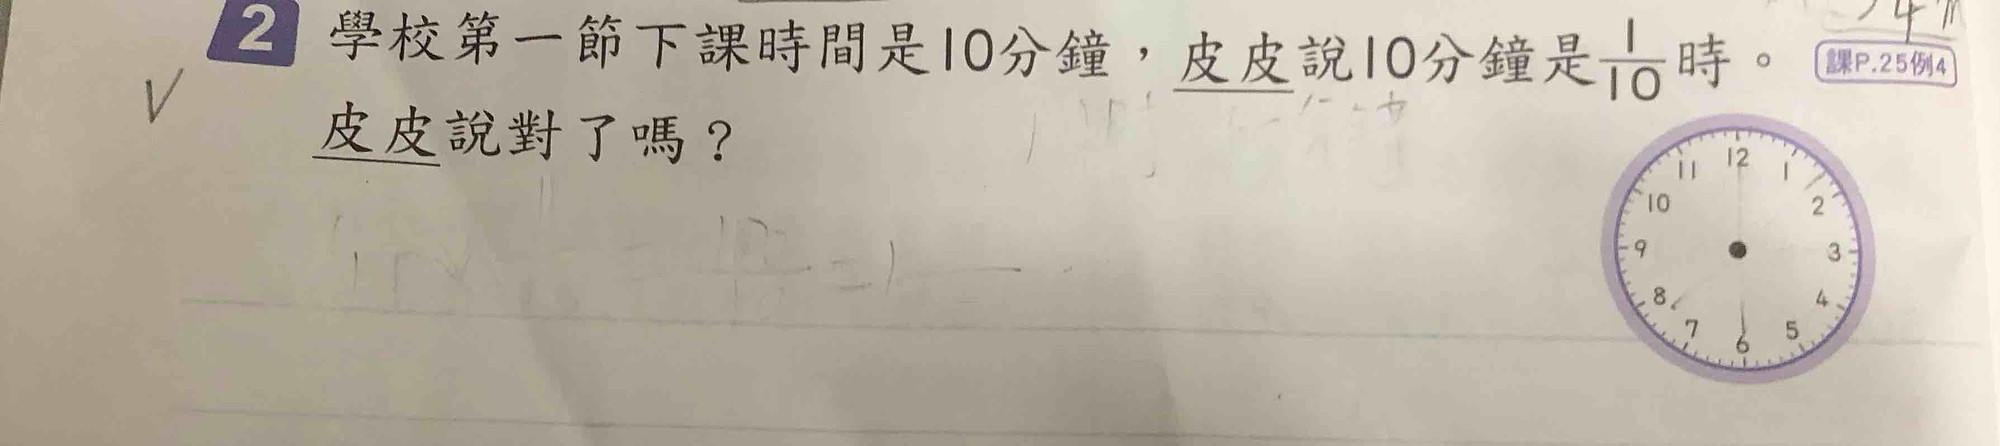 2 學校第一節下課時間是10分鐘，皮皮說10分鐘是1/10時。 課P.25例4
皮皮說對了嗎？
12
11 1
10 2
9 3
8 4
7 5
6